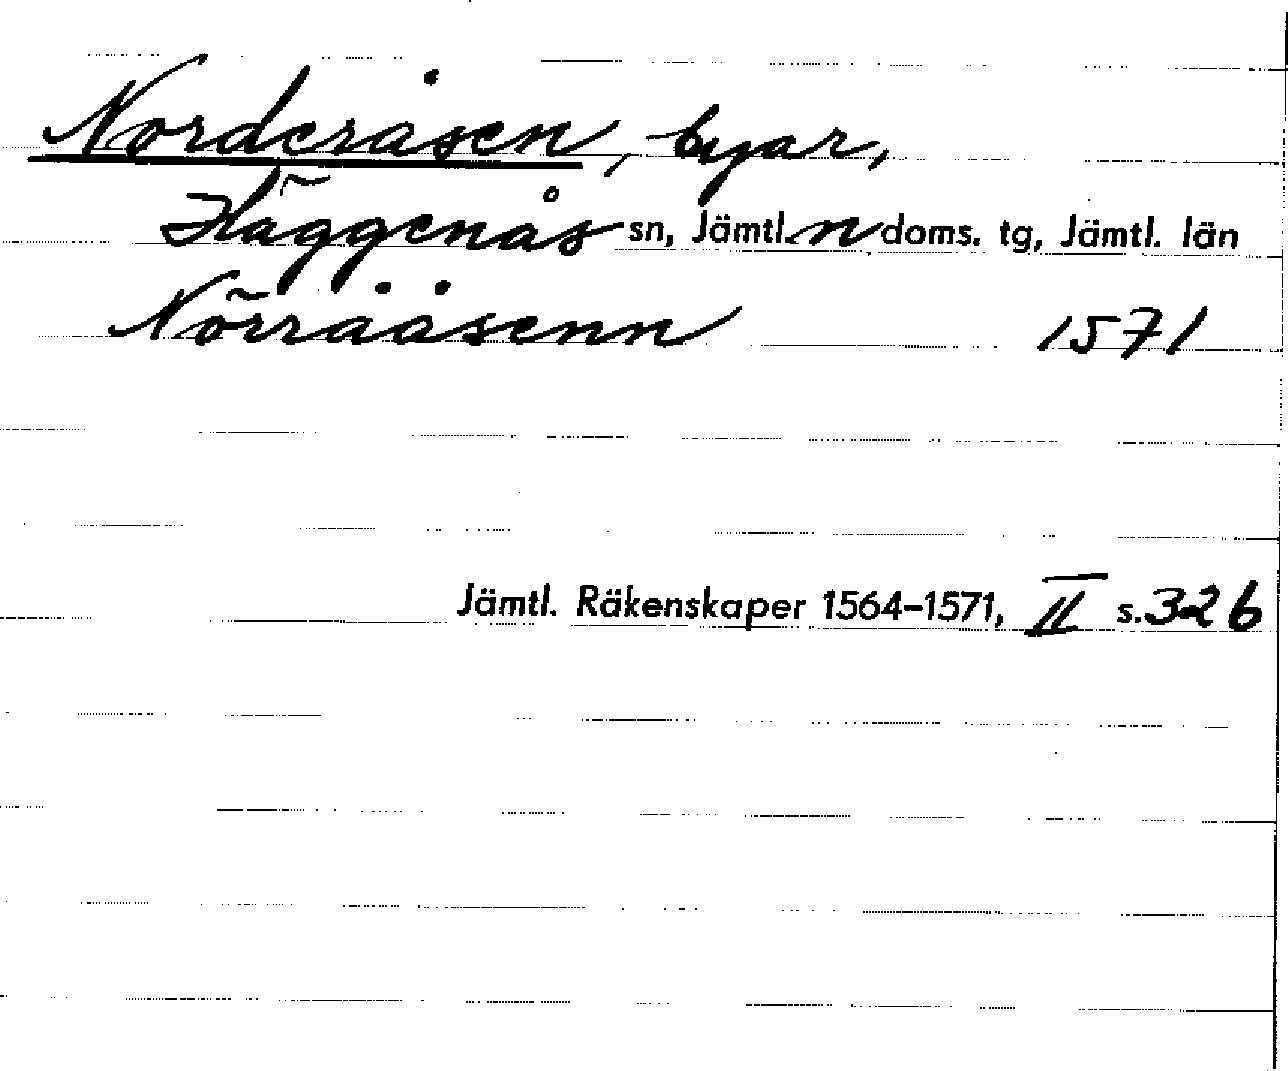 Norderåsen, byar,
Häggenås sn, Jämtl. n doms. tg, Jämtl. län
Nörrååsenn 1571
Jämtl. Räkenskaper 1564-1571, II s. 326